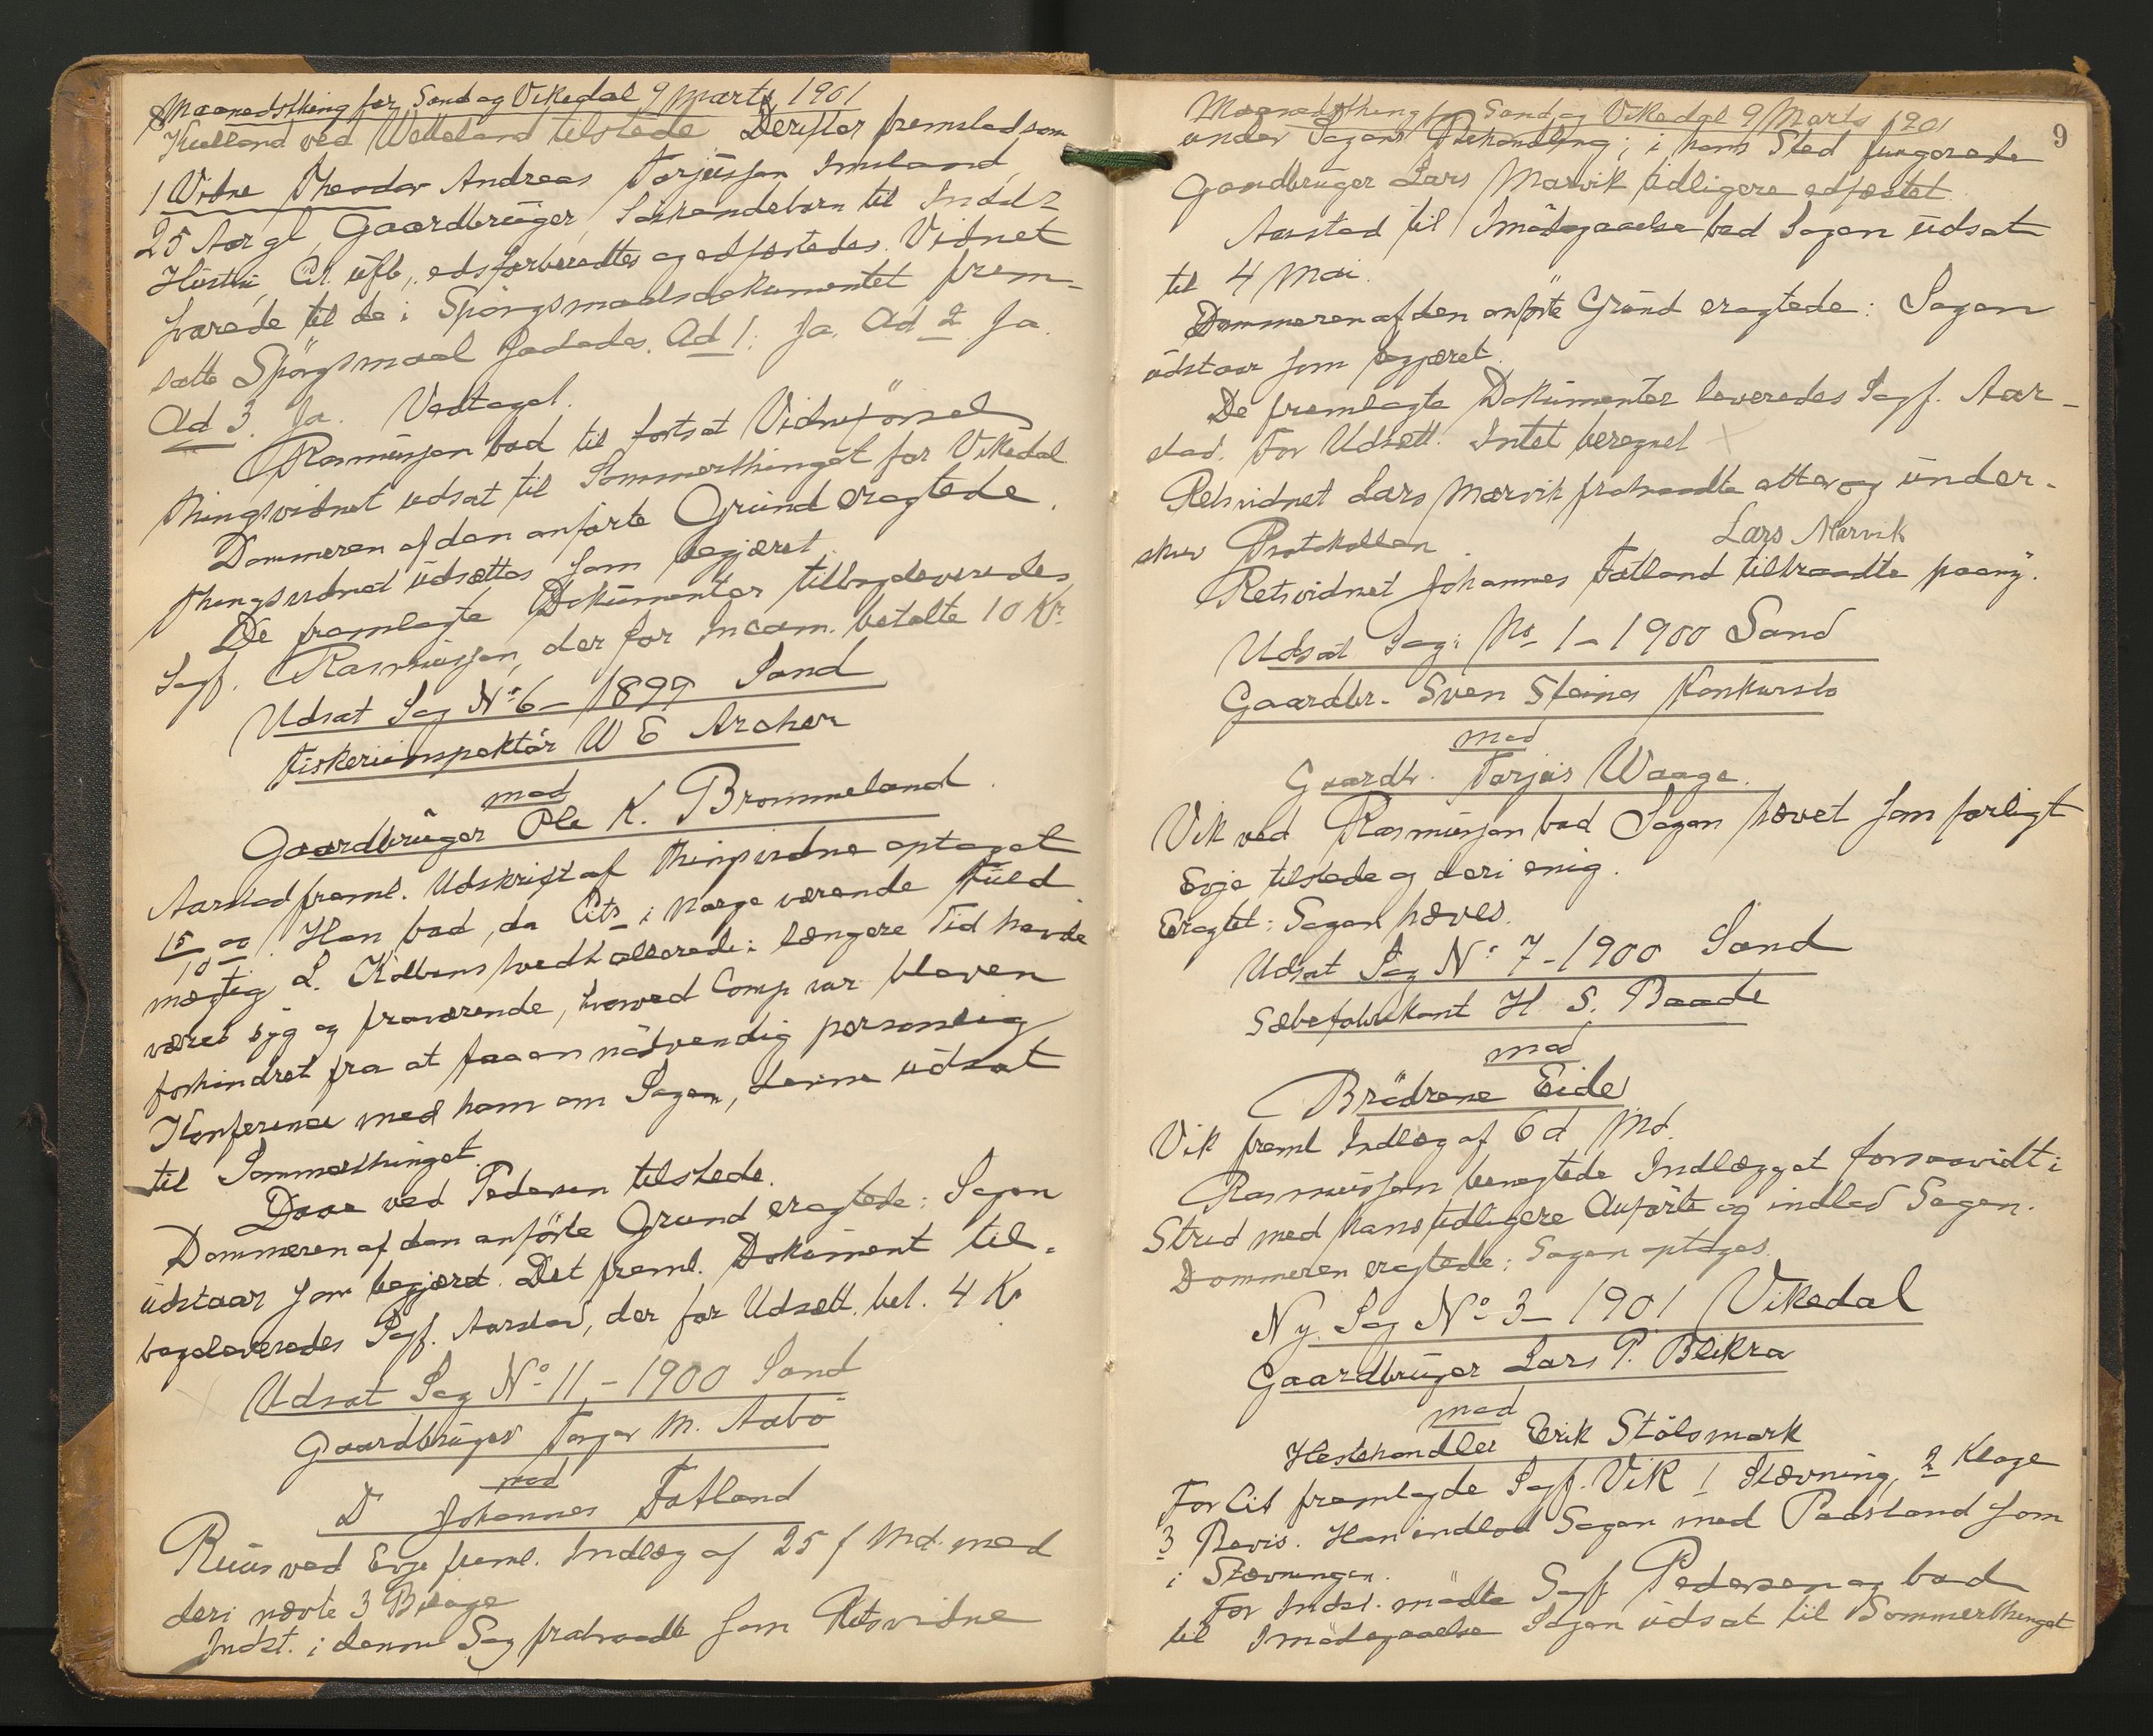 Maanedsthing for Sand og Vikedal 9 Marts 1901
Kulland ved Welleland tilstede. Derefter fremstod som
1 Vidne Theodor Andreas Torjusson Imsland
25 Aar gl Gaardbruger, Søskendebarn til Indst
Hustru, Cit. ufb., edsforberedtes og edfæstedes. Vidnet
svarede til de i Spörgsmaalsdokumentet frem-
satte Spörgsmaal saaledes. Ad 1: Ja. Ad 2 Ja.
Ad 3. Ja. Vedtaget.
Rasmussen bad til fortsat Vidneförsel
thingsvidnet udsat til Sommerthinget for Vikedal
Dommeren af den anförte Grund eragtede.
thingsvidnet udsættes som begjæret.
De fremlagte Dokumenter tilbageleveredes
Sagf. Rasmussen, der for Incam. betalte 10 Kr.
Udsat Sag No 6 - 1899 Sand
Fiskeriinspektör W E Archer
mod
Gaardbruger Ole K. Brommeland.
Aarstad freml. Udskrift af thingsvidne optaget
15/10 00. Han bad, da Cits i Norge værende Fuld
mægtig L. Kolbenstvedt allerede i længere Tid havde
været syg og fraværende, hvorved Comp var bleven
forhindret fra at faa en nödvendig personlig
Konference med ham om Sagen, denne udsat
til Sommerthinget.
Daae ved Pedersen tilstede.
Dommeren af den anförte Grund eragtede: Sagen
udstaar som begjæret. Det freml. Dokument til-
bageleveredes Sagf. Aarstad, der for Udsætt. bet. 4 Kr
Udsat Sag No 11 - 1900 Sand
Gaardbruger Torger M. Aabö
mod
D Johannes Fatland
Ruus ved Evje freml. Indlæg af 25 f Md. med
deri nævte 3 Bilage
Indst. i denne Sag fratraadte som Retsvidne
9
Maanedsthing for Sand og Vikedal 9 Marts 1901
under Sagens Behandling; i hans Sted fungerede
Gaardbruger Lars Marvik tidligere edfæstet.
Aarstad til Imödegaaelse bad Sagen udsat
til 4 Mai.
Dommeren af den anförte Grund eragtede: Sagen
udstaar som begjæret.
De fremlagte Dokumenter leveredes Sagf. Aar-
stad. For Udsætt. Intet beregnet
Retsvidnet Lars Marvik fratraadte atter og under-
skrev Protokollen.
Lars Marvik
Retsvidnet Johannes Fatland tiltraadte paany.
Udsat Sag: No 1 - 1900 Sand
Gaardbr. Sven Steines Konkursbo
mod
Gaardbr. Torjus Waage.
Vik ved Rasmussen bad Sagen hævet som forligt
Evje tilstede og deri enig.
Eragtet: Sagen hæves.
Udsat Sag No 7 - 1900 Sand
Sæbefabrikant H. S. Baade
mod
Brödrene Eide
Vik freml Indlæg af 6 d Md.
Rasmussen benegtede Indlægget forsaavidt i
Strid med hans tidligere Anförte og indlod Sagen.
Dommeren eragtede: Sagen optages.
Ny Sag No 3 - 1901 Vikedal
Gaardbruger Lars P. Blikra
mod
Hestehandler Erik Stölsmark
For Cit fremlagde Sagf. Vik 1 Stævning, 2 Klage
3 Bevis. Han indlod Sagen med Paastand som
i Stævningen.
For Indst. mödte Sagf Pedersen og bad
til Imödegaaelse Sagen udsat til Sommerthinget